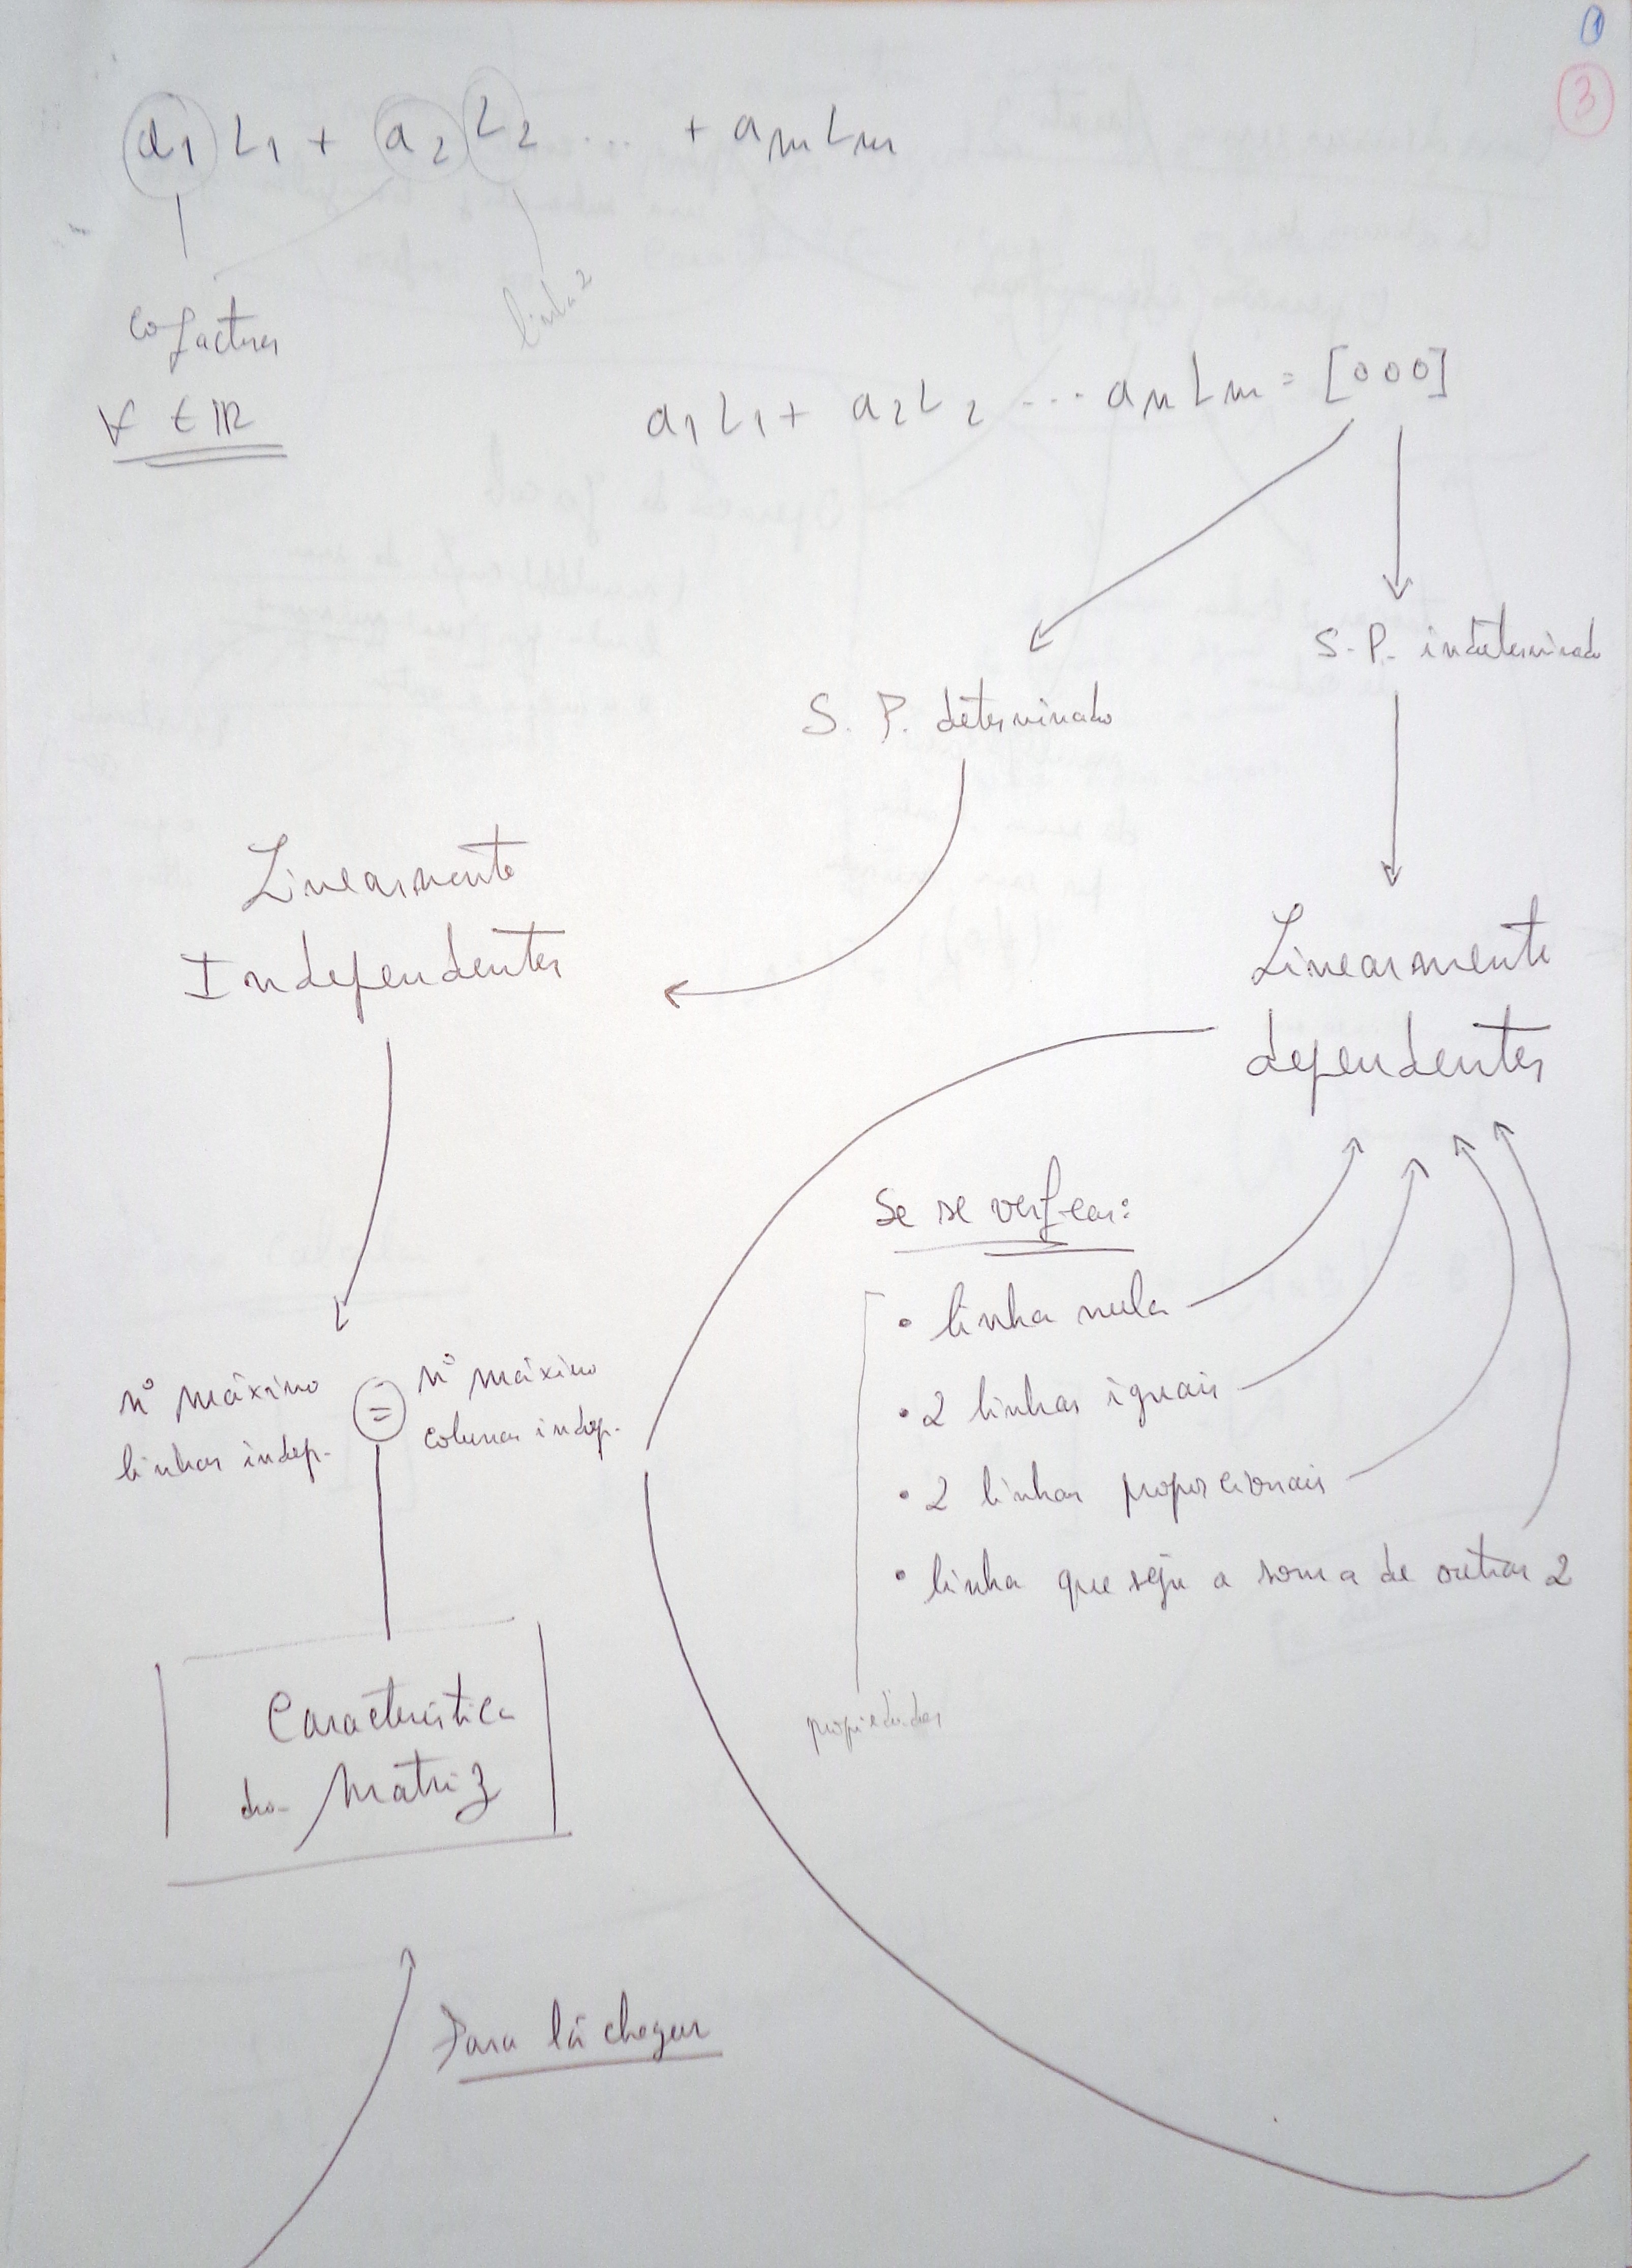 1
3
a₁ L₁ + a₂ L₂ ... + aₘLₘ
linha 2
cofactores
∀ ∈ ℝ
a₁L₁ + a₂L₂ ... aₘLₘ = [000]
S.P. indeterminado
S. P. determinado
Linearmente
Independentes
Linearmente
dependentes
Se se verficar:
• linha nula
• 2 linhas iguais
• 2 linhas proporcionais
• linha que seja a soma de outras 2
propiedades
nº máximo
linhas indep.
=
nº máximo
colunas indep.
Característica
da Matriz
Para lá chegar